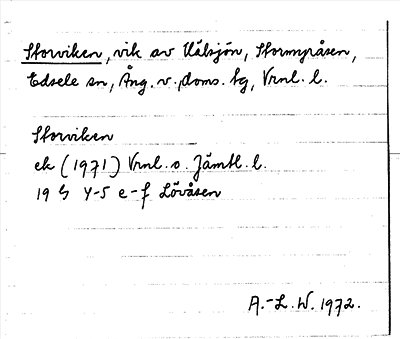 Storviken, vik av Välsjön, Stormyråsen,
Edsele sn, Ång. v. doms. tg, Vrnl. l.
Storviken
ek (1971) Vrnl. o. Jämtl. l.
19 G 4-5 e-f Lövåsen
A.-L. W. 1972.